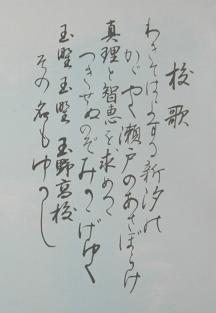 校歌
新汐の
かゞやく瀬戸のあさぼらけ
真理と智恵を求めつゝ
つきせぬのぞみかゝげゆく
玉墅玉墅 玉野高校
その名もゆかし